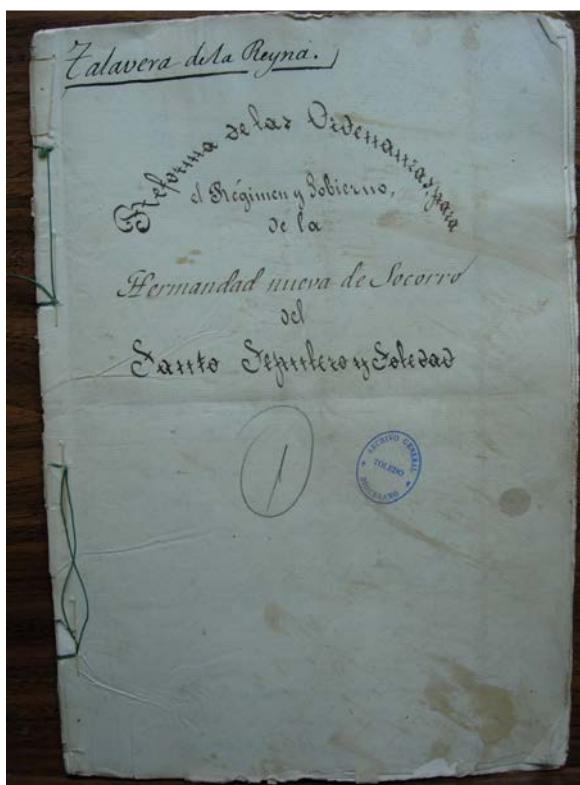 Talavera de la Reyna.
Reforma de las Ordenanzas, para
el Régimen y Gobierno,
de la
Hermandad nueva de Socorro
del
Santo Sepulcro y Soledad
1
ARCHIVO GENERAL
TOLEDO
DIOCESANO